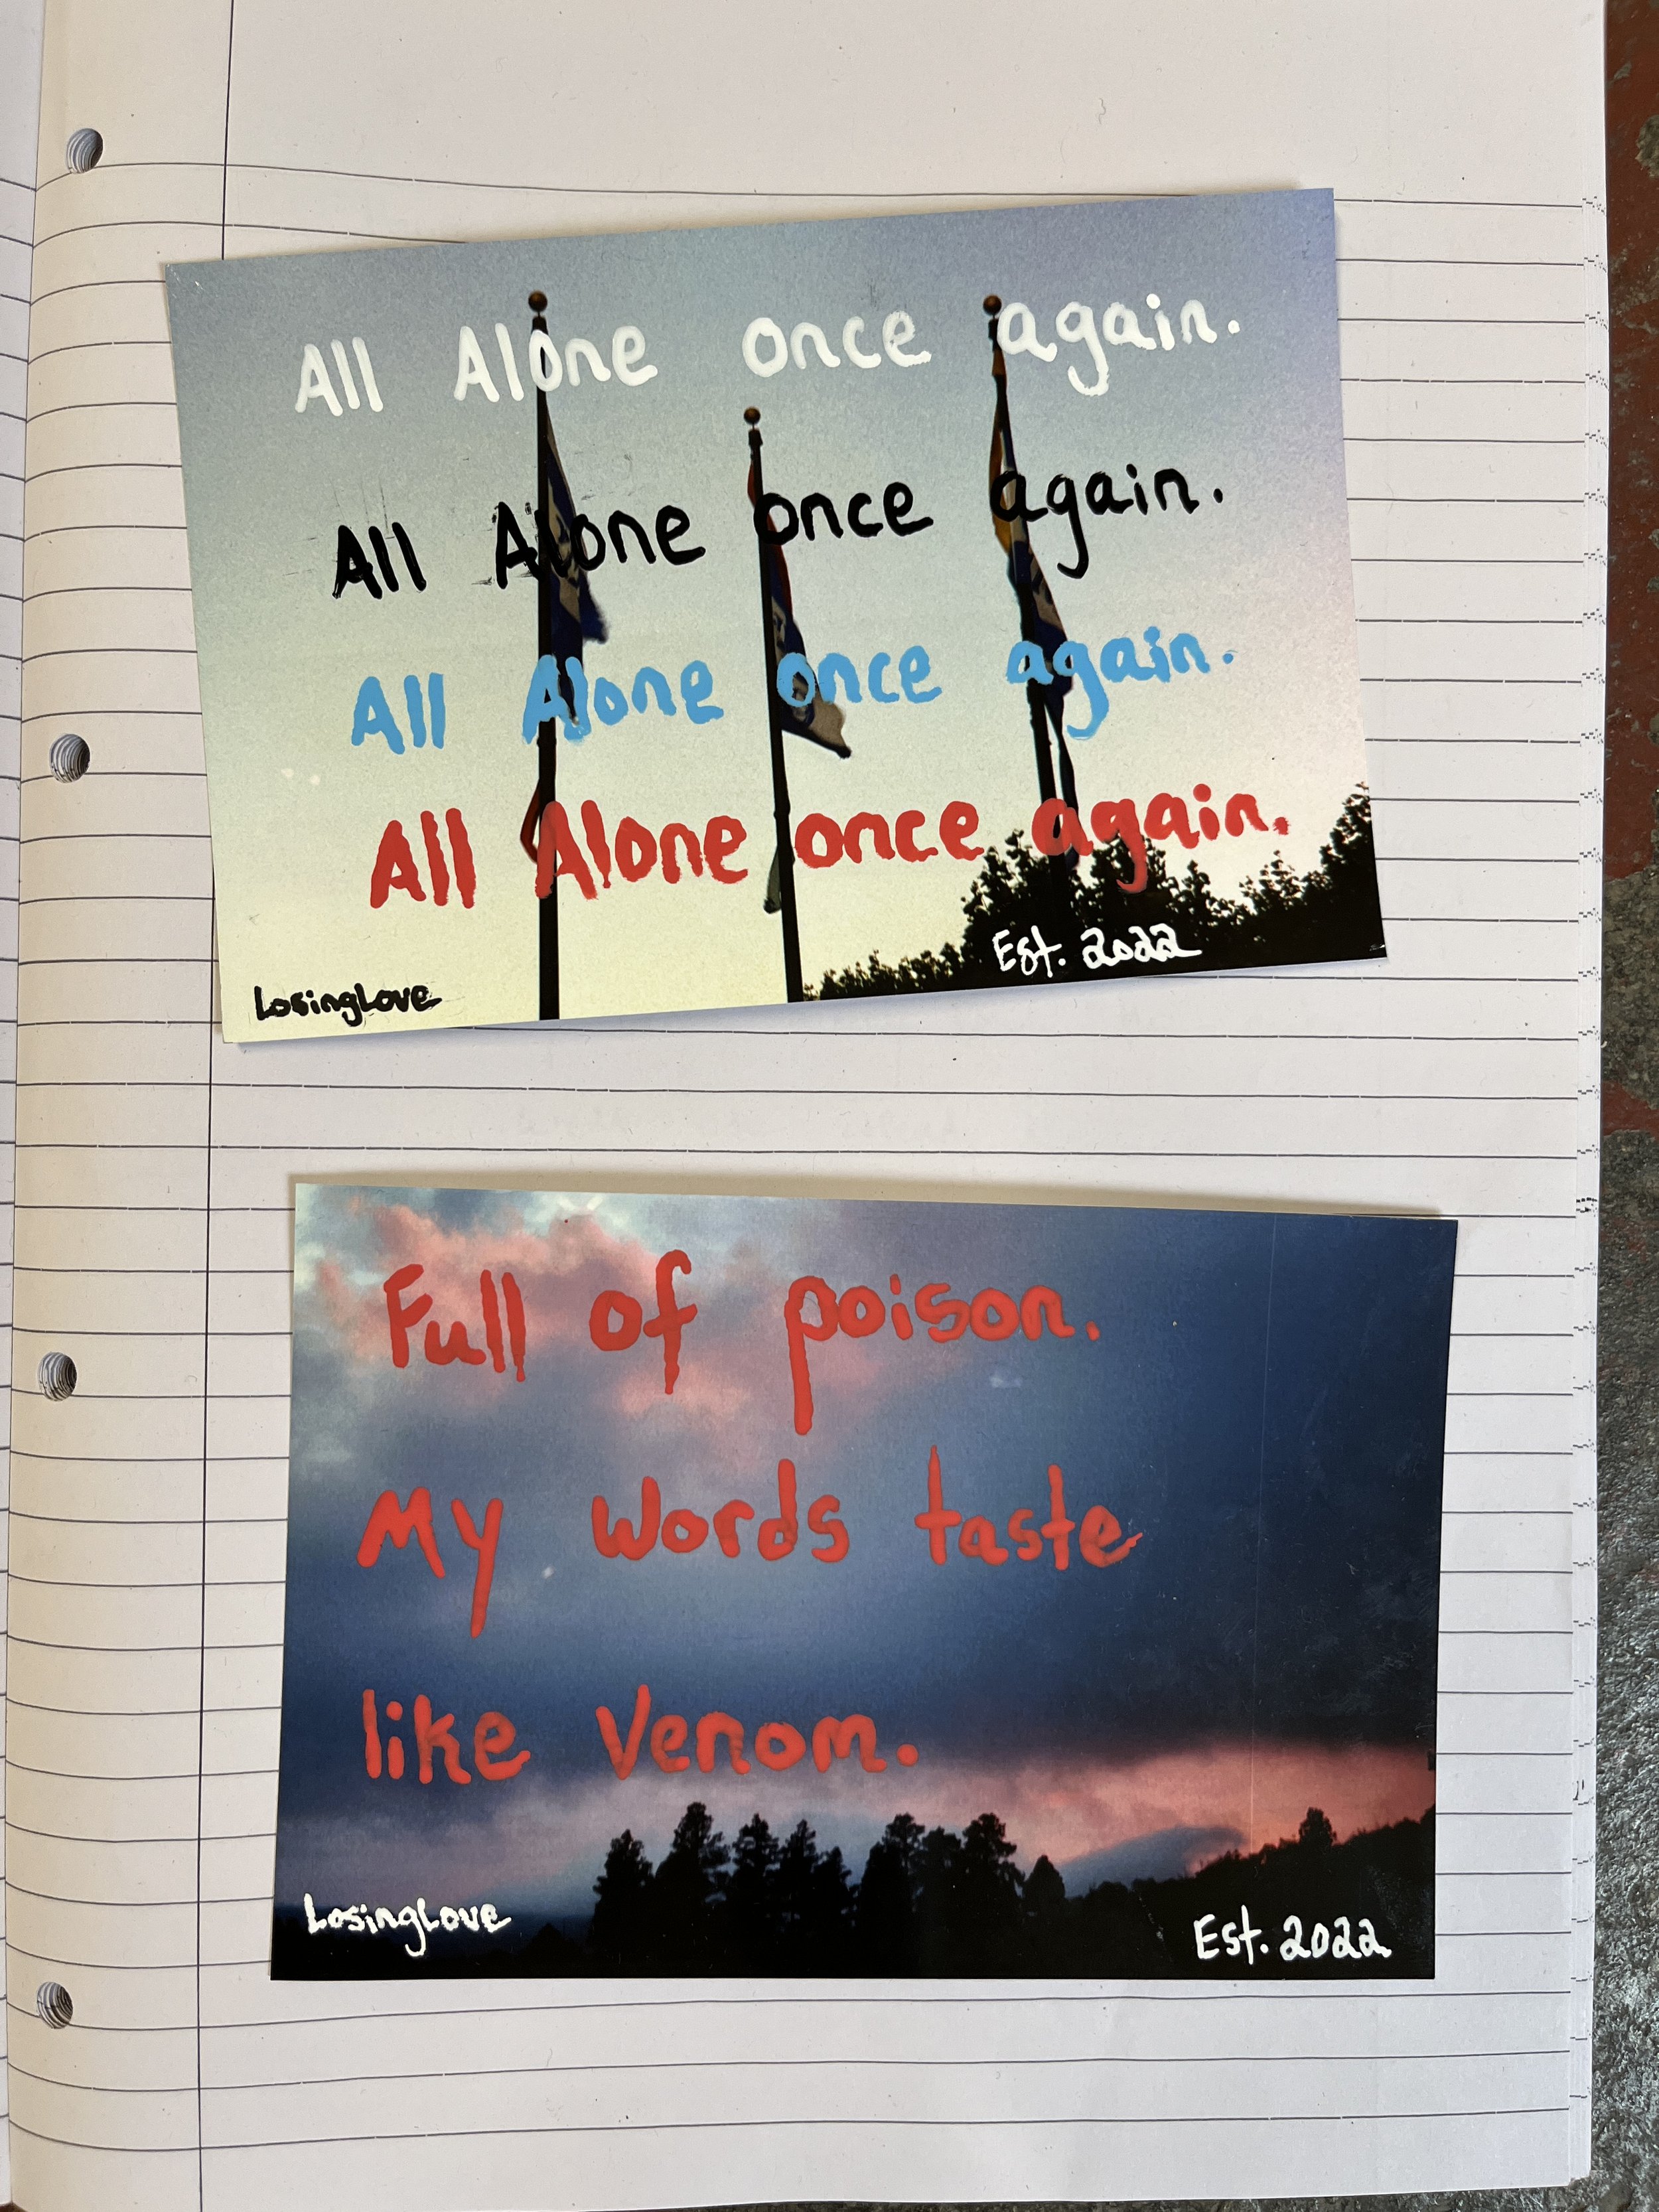 All Alone once again.
All Alone once again.
All Alone once again.
All Alone once again.
LosingLove
Est. 2022
Full of poison.
My words taste
like Venom.
LosingLove
Est. 2022